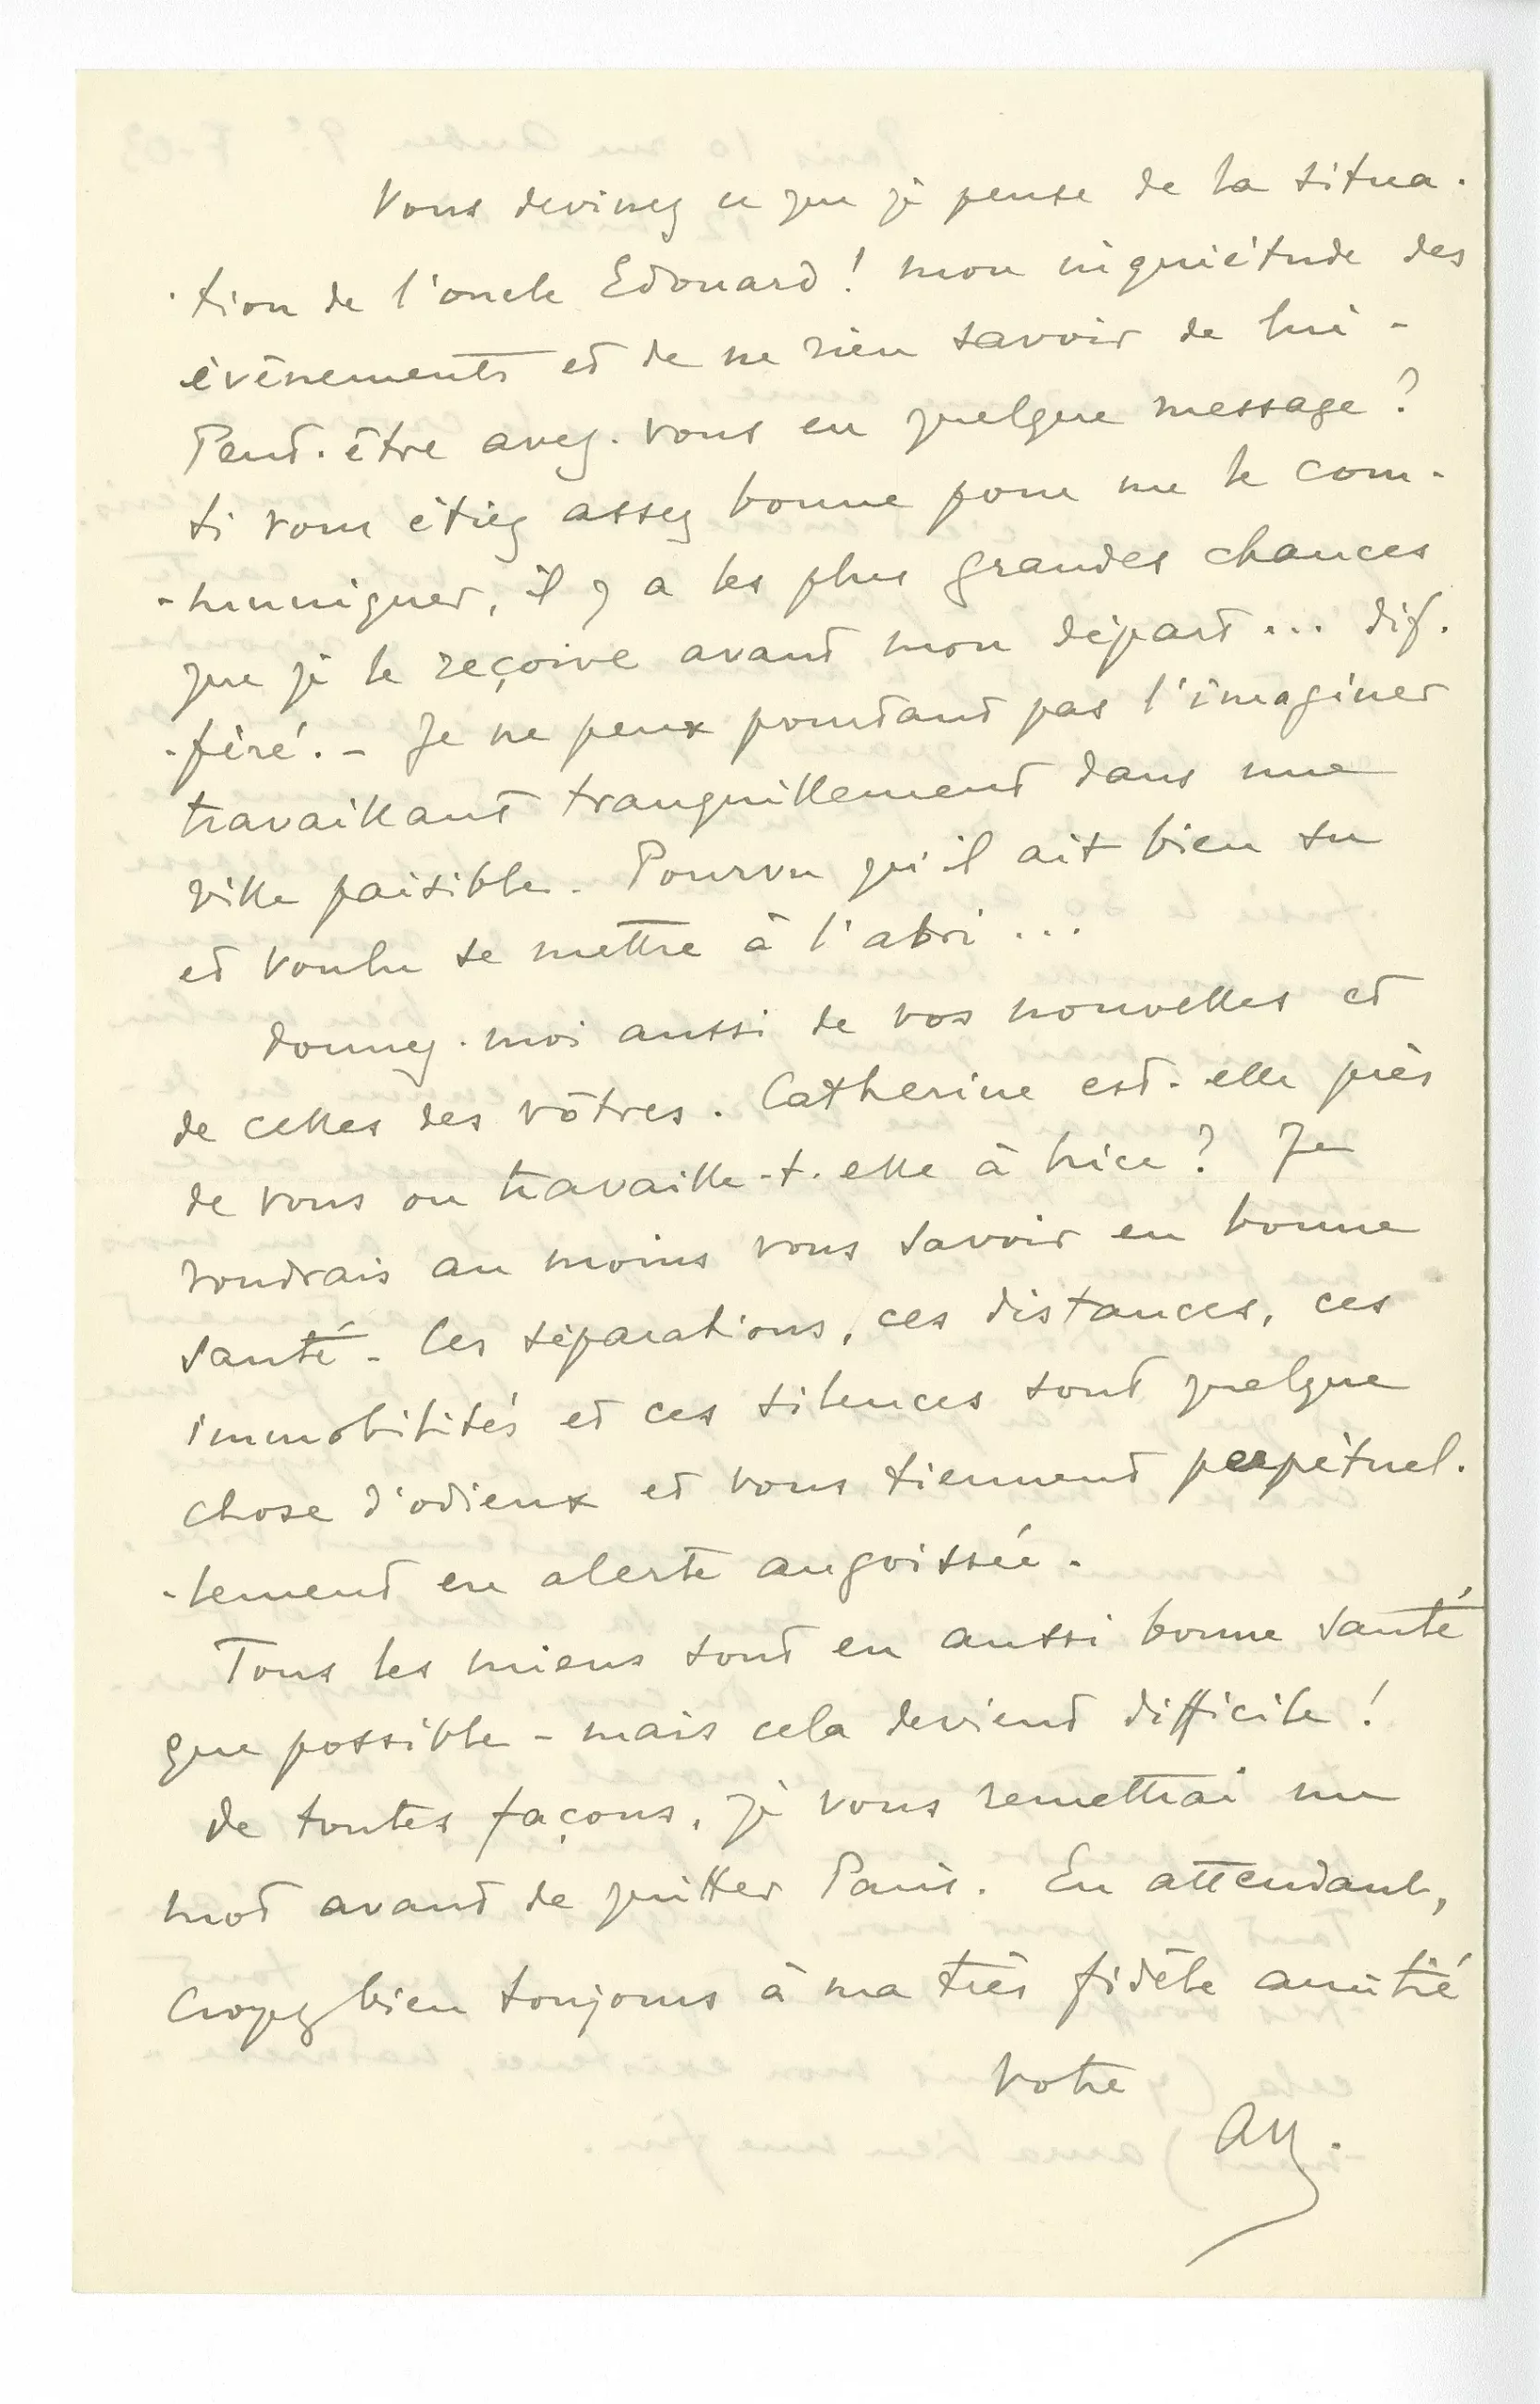 Vous devinez ce que je pense de la situa-
-tion de l'oncle Edouard ! mon inquiétude des
évènements et de ne rien savoir de lui -
Peut-être avez-vous eu quelque message ?
Si vous étiez assez bonne pour me le com-
-muniquer, il y a les plus grandes chances
que je le reçoive avant mon départ... dif-
-féré. - Je ne peux pourtant pas l'imaginer
travaillant tranquillement dans une
ville paisible. Pourvu qu'il ait bien su
et voulu se mettre à l'abri...
Donnez-moi aussi de vos nouvelles et
de celles des vôtres. Catherine est-elle près
de vous ou travaille-t-elle à Nice ? Je
voudrais au moins vous savoir en bonne
santé - Ces séparations, ces distances, ces
immobilités et ces silences sont quelque
chose d'odieux et vous tiennent perpétuel-
-lement en alerte angoissée.
Tous les miens sont en aussi bonne santé
que possible - mais cela devient difficile !
De toutes façons, je vous remettrai un
mot avant de quitter Paris. En attendant,
croyez bien toujours à ma très fidèle amitié
Votre